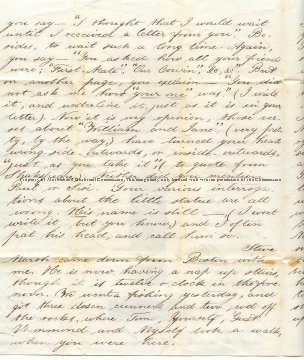 you say — "I thought that I would wait
until I received a letter from you" Be-
sides, to wait such a long time. Again,
you say — "You asked how all your friends
were; 'First Mate', 'Our Cousin', &c. &c. But
on another page you exclaim — "You did
not ask me how "your one" was" (I write
it, and underline it, just as it is in your
letter.) Now it is my opinion, those ver-
ses about "William and Jane", (very pret-
ty, by the way,) have turned your head
wrong side outwards, or inside outwards,
"just as you take it" (to quote from
Your various interroga-
tions about the little statue are all
wrong. His name is still — (I wont
write it, but you know,) and I often
pat his head, and call him so.
Steve
Marsh came down from Boston, with
me. He is now having a nap up stairs,
though it is twelve o'clock in the fore-
noon. We went a fishing yesterday, and
got three dozen cunners, and two cod off
the rocks, where Tom, Yourself,
and Myself took a walk,
when you were here.